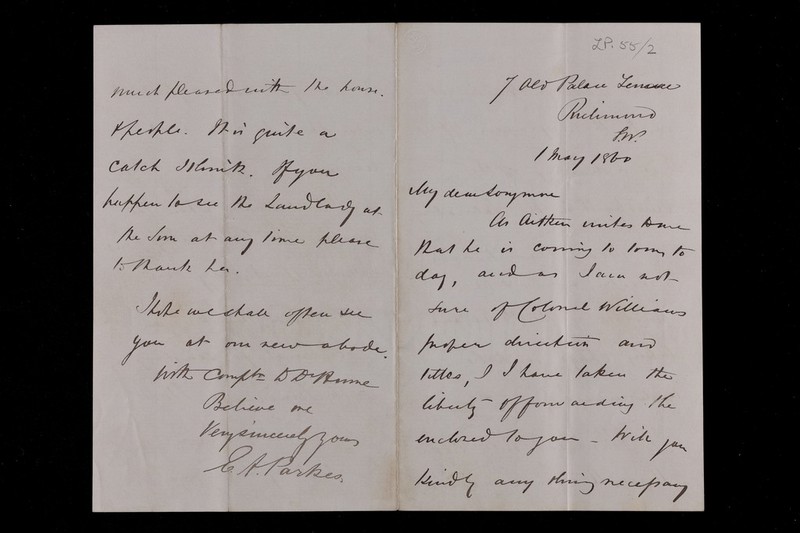 LP. 55/2
7 Old Palace Terrace
Richmond
S.W.
1 May 1860
My dear Longmore
As Aitken writes to me
that he is coming to town to
day, and as I am not
sure of Colonel Williams
proper direction and
titles, I have taken the
liberty of forwarding the
enclosed to you - Will you
kindly any thing necessary
much pleased with the house.
& people. It is quite a
catch I think. If you
happen to see the Landlady at
the Inn at any time please
to thank her.
I hope we shall often see
you at our new abode.
With Compts to Dr
Believe me
Very sincerely yours
E. A. Parkes.